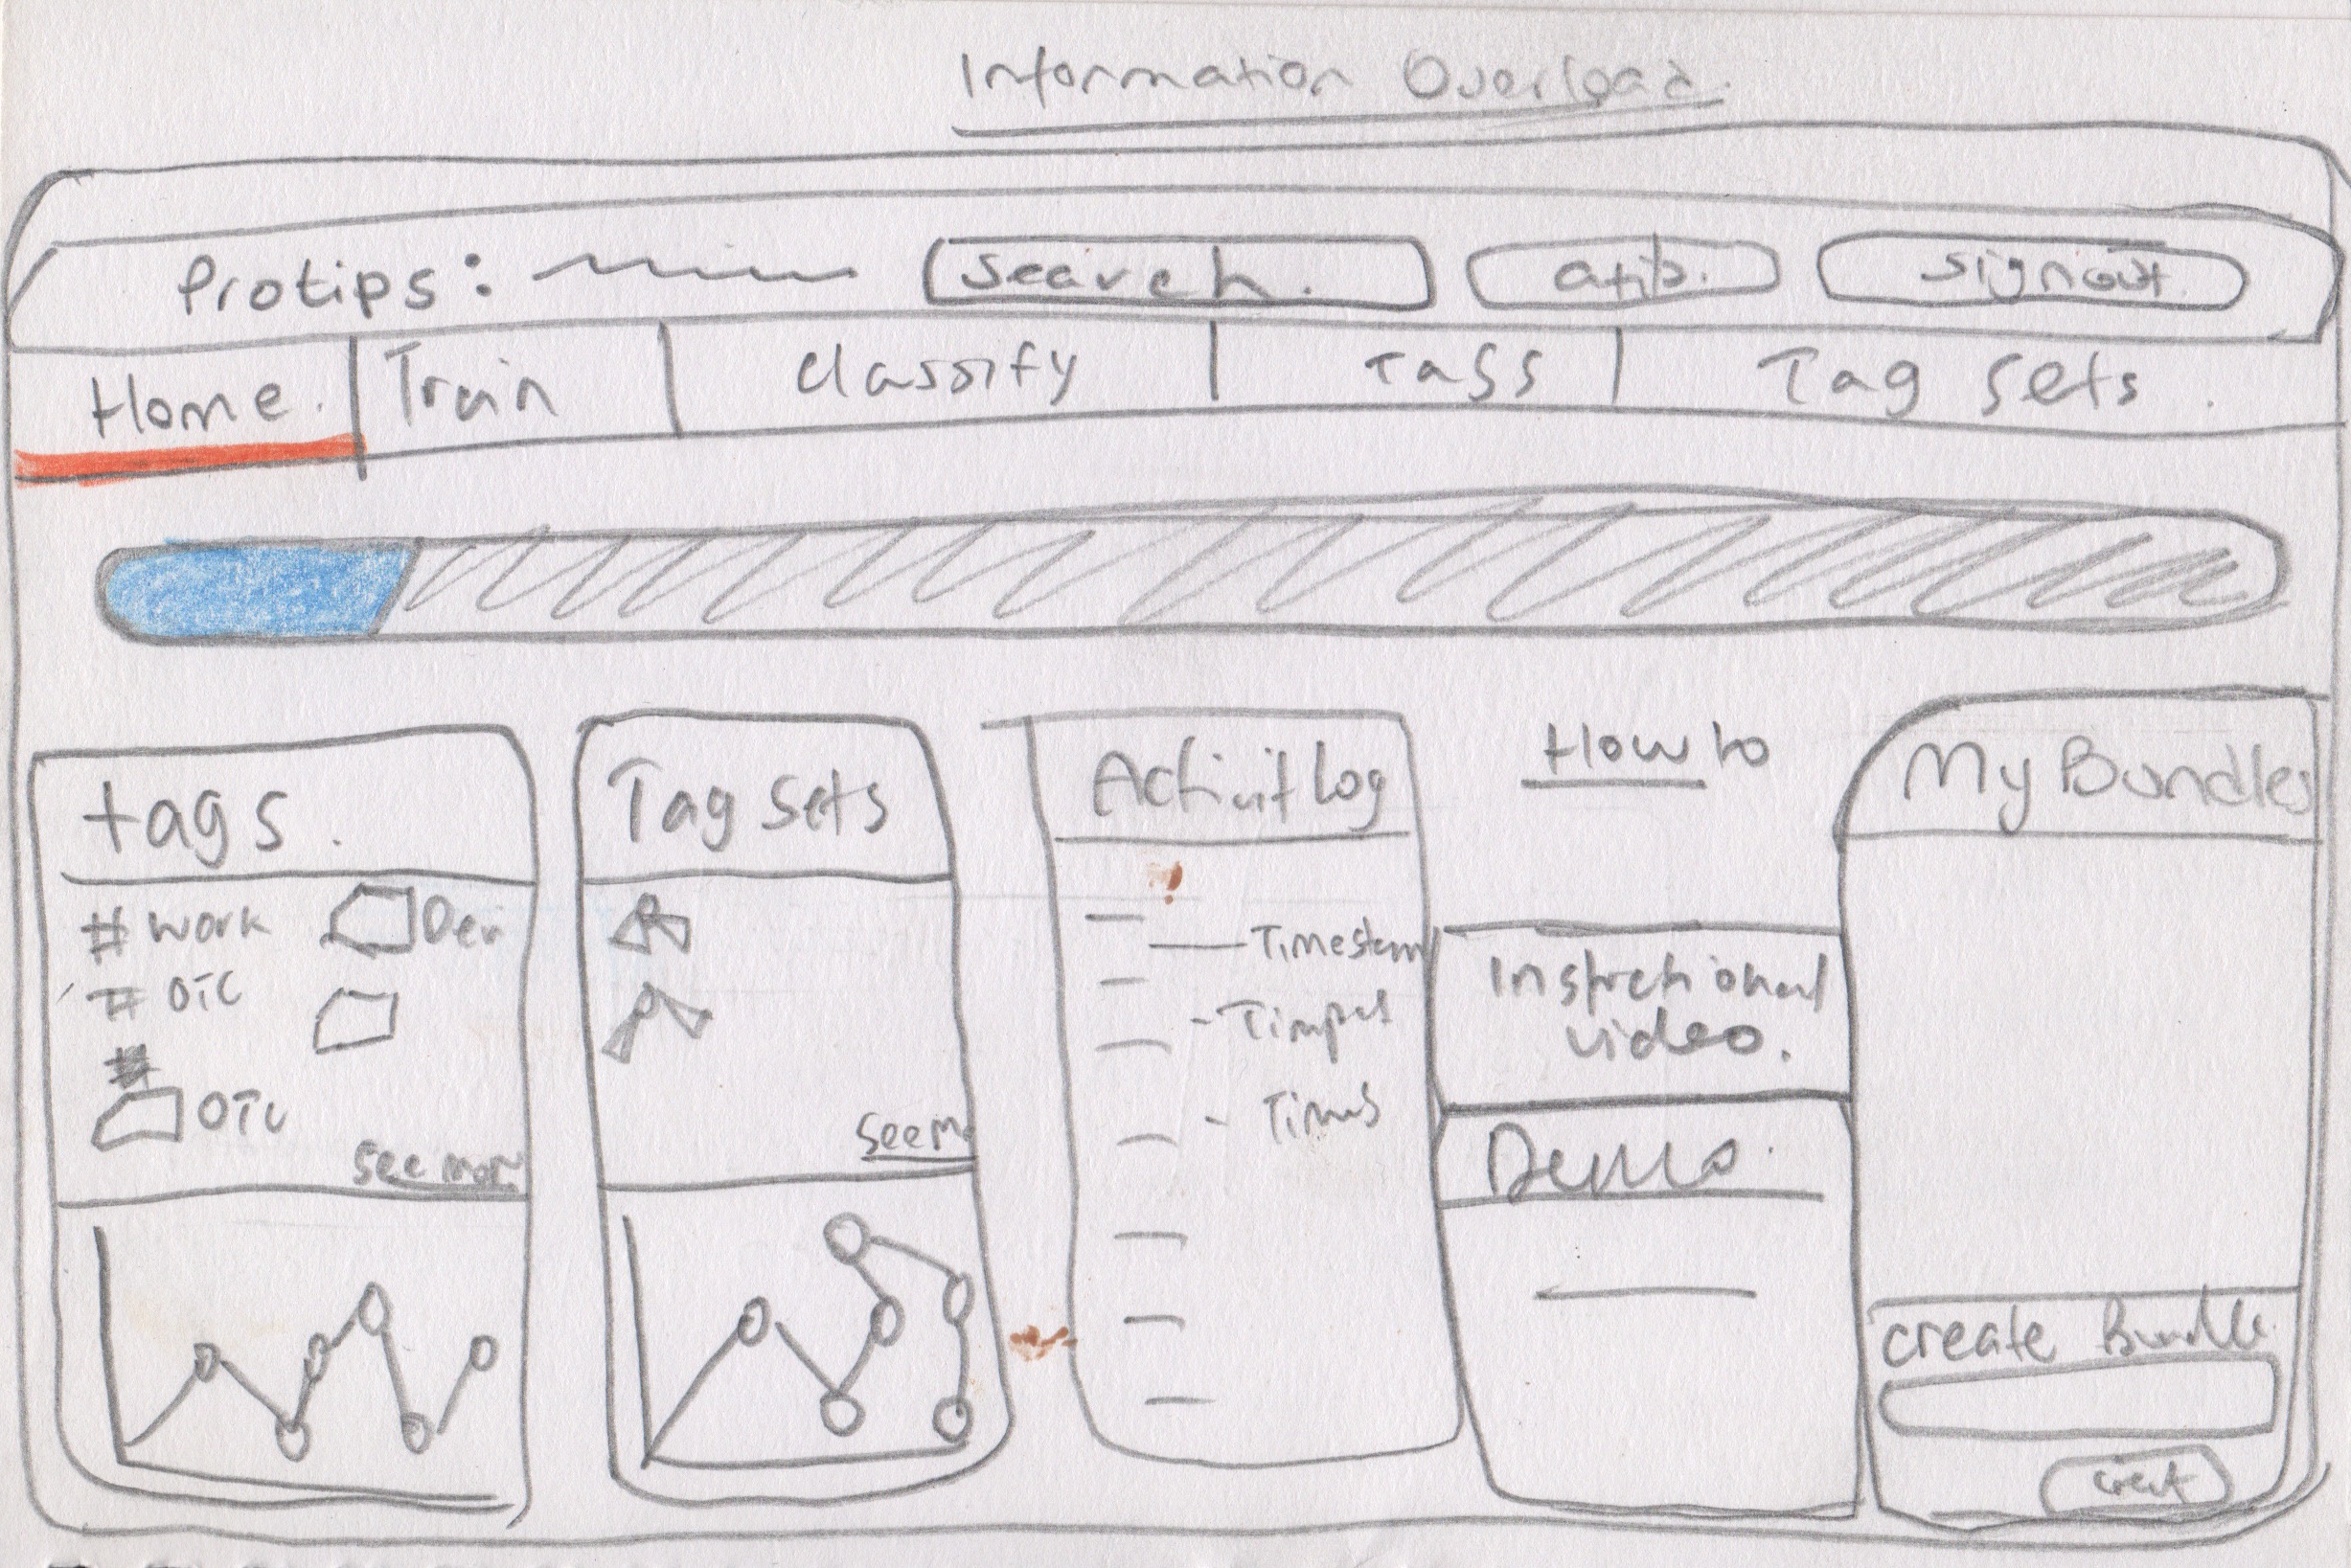 Information Overload.
Protips: search. atib. signout
Home. Train Classify Tags Tag Sets.
tags.
# work Dev
# OTC
#
OTC
see mor
Tag Sets
see m
Activit Log
Timestam
How to
Instrctional
video.
Demo.
My Bundles
create Bundle.
creat